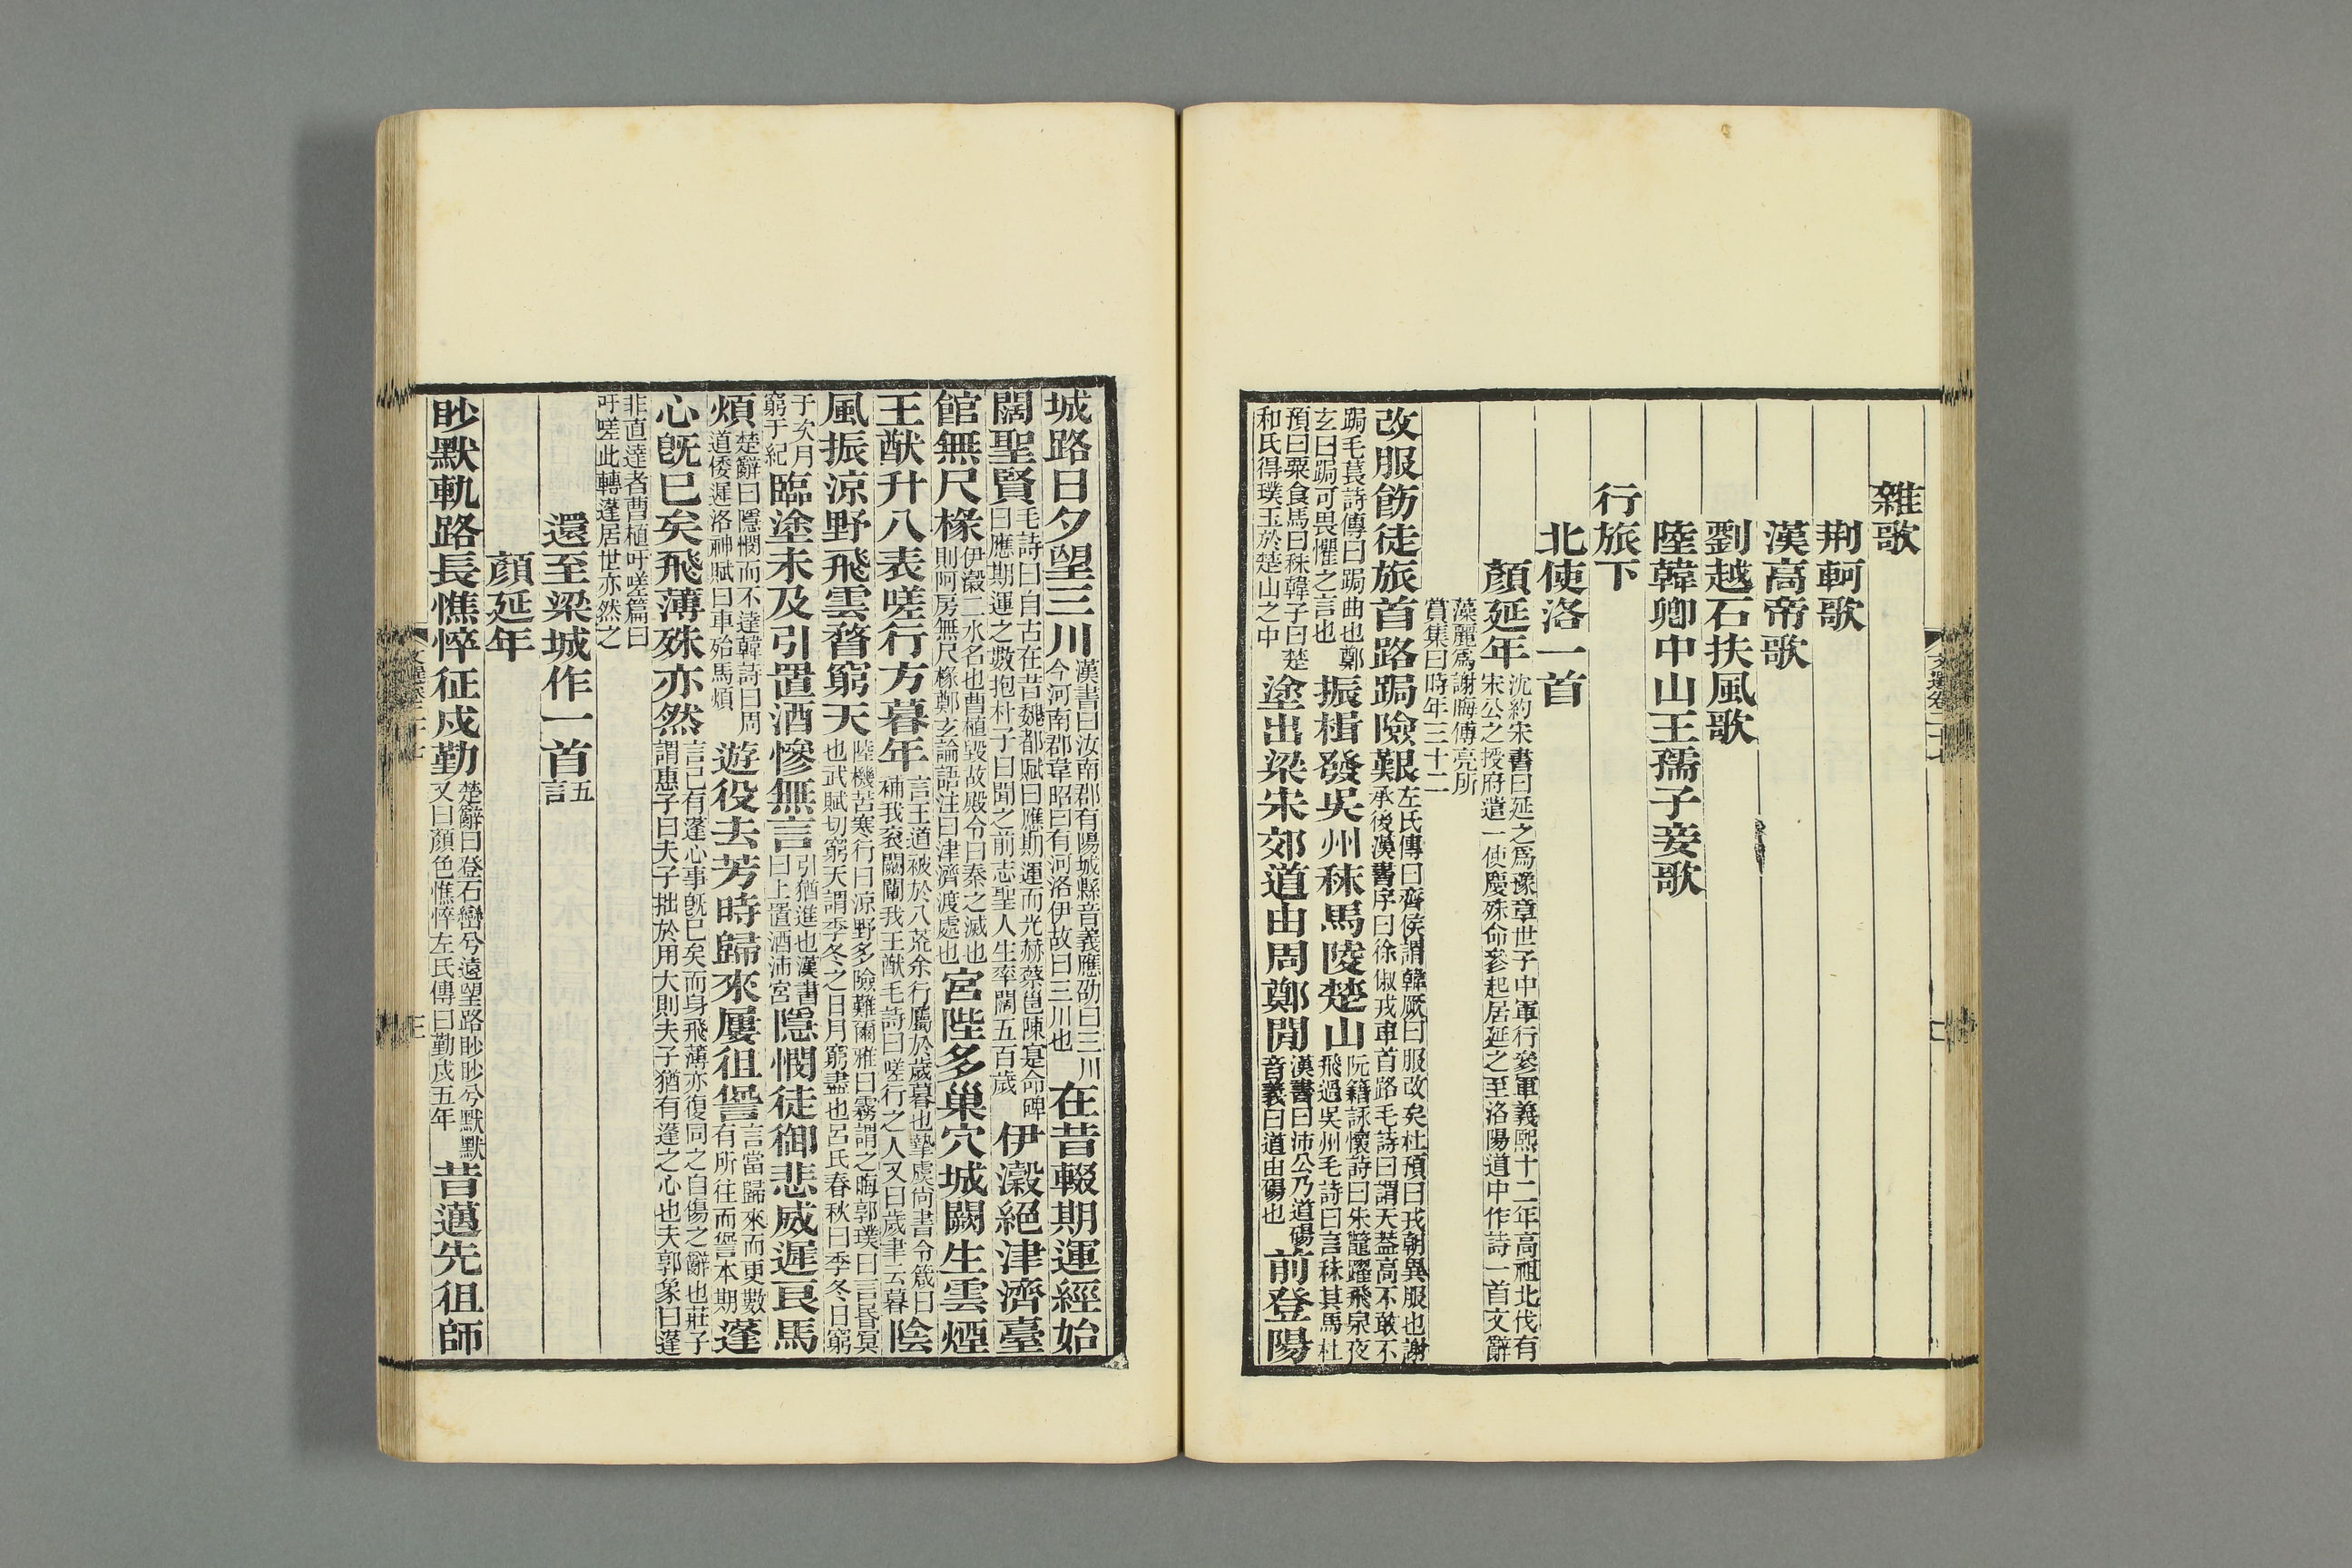 雜歌
荆軻歌
漢高帝歌
劉越石扶風歌
陸韓卿中山王孺子妾歌
行旅下
北使洛一首
顏延年沈約宋書曰延之爲豫章世子中軍行參軍義熙十二年高祖北伐有宋公之授府遣一使慶殊命參起居延之至洛陽道中作詩一首文辭
藻麗爲謝晦傅亮所賞集曰時年三十二
改服飭徒旅首路跼險艱左氏傳曰齊侯謂韓厥曰服改矣杜預曰戎朝異服也謝承後漢書序曰徐俶戎車首路毛詩曰謂天蓋高不敢不
跼毛萇詩傳曰跼曲也鄭玄曰跼可畏懼之言也振楫發吳州秣馬陵楚山阮籍詠懷詩曰朱鼈躍飛泉夜飛過吳州毛詩曰言秣其馬杜
預曰粟食馬曰秣韓子曰楚和氏得璞玉於楚山之中塗出梁宋郊道由周鄭閒漢書曰沛公乃道碭音義曰道由碭也前登陽
城路日夕望三川漢書曰汝南郡有陽城縣音義應劭曰三川今河南郡韋昭曰有河洛伊故曰三川也在昔輟期運經始
闊聖賢毛詩曰自古在昔魏都賦曰應期運而光赫蔡邕陳寔命碑曰應期運之數抱朴子曰聞之前志聖人生率闊五百歲伊瀔絕津濟臺
館無尺椽伊瀔二水名也曹植毀故殿令曰秦之滅也則阿房無尺椽鄭玄論語注曰津濟渡處也宮陛多巢穴城闕生雲煙
王猷升八表嗟行方暮年言王道被於八荒余行屬於歲暮也摯虞尚書令箴曰補我衮闕闡我王猷毛詩曰嗟行之人又曰歲聿云暮陰
風振涼野飛雲瞀窮天陸機苦寒行曰涼野多險難爾雅曰霧謂之晦郭璞曰言昬冥也武賦切窮天謂季冬之日月窮盡也呂氏春秋曰季冬日窮
于次月窮于紀臨塗未及引置酒慘無言引猶進也漢書曰上置酒沛宮隱憫徒御悲威遲良馬
煩楚辭曰隱憫而不達韓詩曰周道倭遲洛神賦曰車殆馬煩遊役去芳時歸來屢徂諐言當歸來而更數有所往而諐本期蓬
心旣已矣飛薄殊亦然言已有蓬心事旣已矣而身飛薄亦復同之自傷之辭也莊子謂惠子曰夫子拙於用大則夫子猶有蓬之心也夫郭象曰蓬
非直達者曹植吁嗟篇曰吁嗟此轉蓬居世亦然之
還至梁城作一首五言
顏延年
眇默軌路長憔悴征戍勤楚辭曰登石巒兮遠望路眇眇兮默默又曰顏色憔悴左氏傳曰勤戍五年昔邁先徂師
文選卷二十七
三